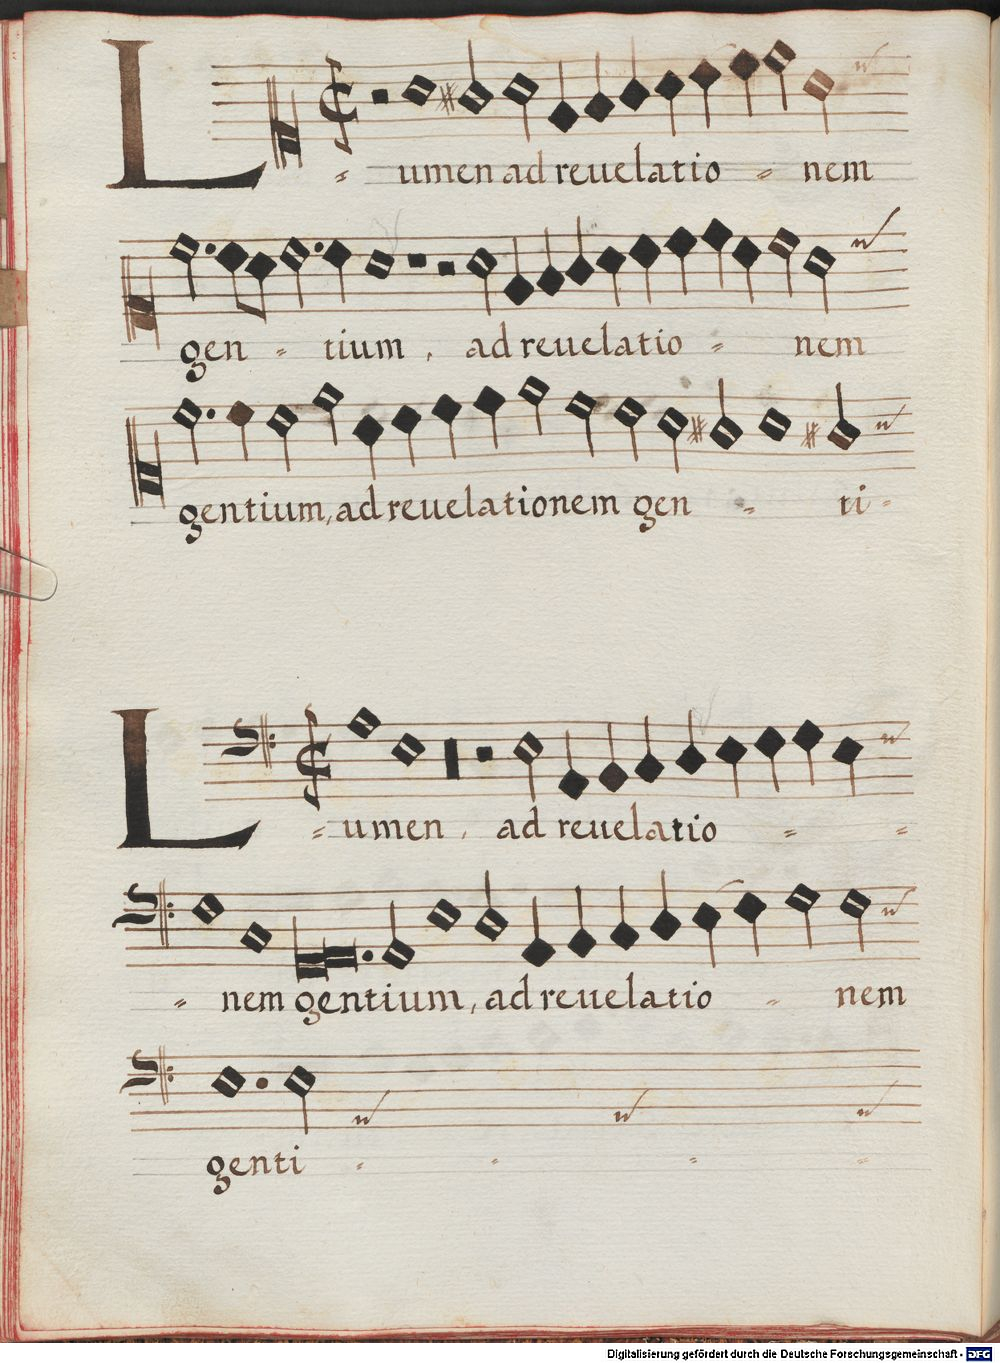 L - umen ad reuelatio - nem
gen - tium, ad reuelatio - nem
gentium, ad reuelationem gen - ti -
L - umen, ad reuelatio - -
- nem gentium, ad reuelatio - nem
genti - - - -
Digitalisierung gefördert durch die Deutsche Forschungsgemeinschaft - DFG